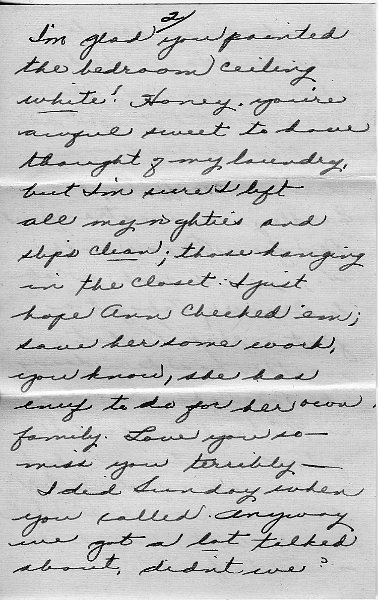 2/
I'm glad you painted
the bedroom ceiling
white! Honey, you're
awful sweet to have
thought of my laundry,
but I'm sure I left
all my nighties and
slips clean; those hanging
in the closet. I just
hope Ann checked 'em;
save her some work,
you know, she has
enuf to do for her own
family. Love you so—
miss you terribly—
I did Sunday when
you called. Anyway
we got a lot talked
about, didn't we?